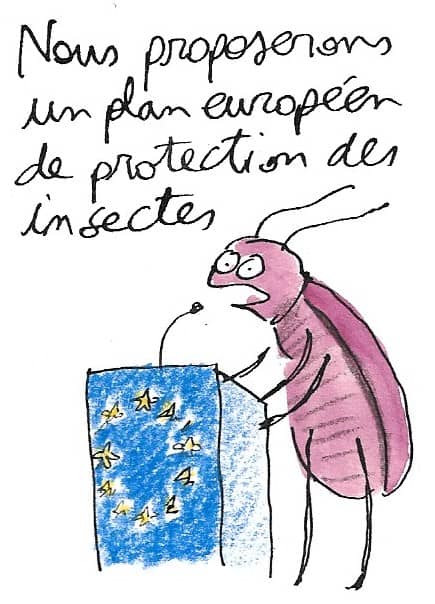 Nous proposerons
un plan européen
de protection des
insectes